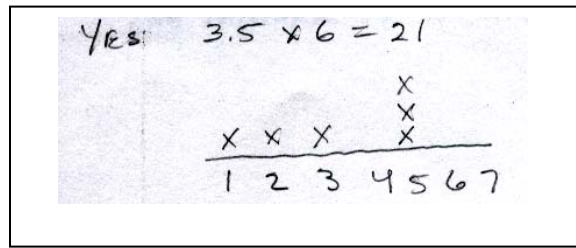 YES: 3.5 x 6 = 21
x
x
x x x x
1 2 3 4 5 6 7